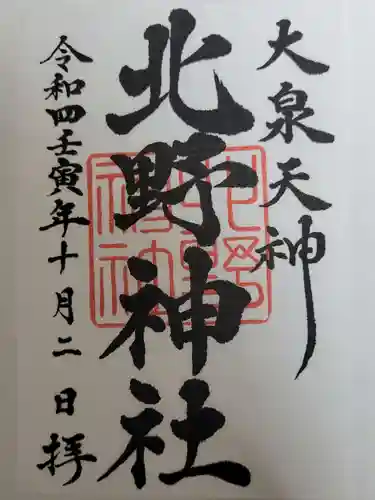 大泉天神
北野神社
令和四壬寅年十月二日拝
北野神社